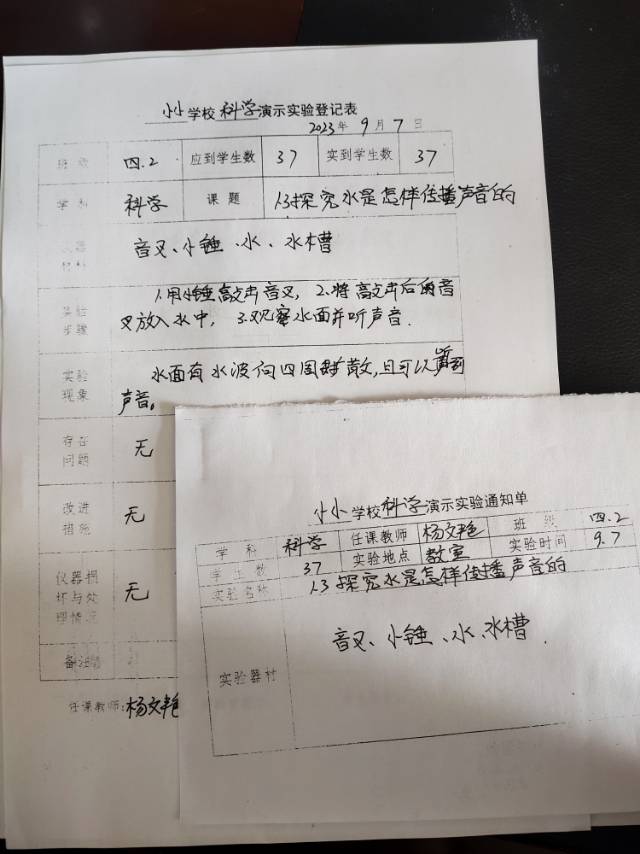 小小学校科学演示实验登记表
2023年9月7日
班级 四.2 应到学生数 37 实到学生数 37
学科 科学 课题 1.3探究水是怎样传播声音的
音叉、小锤、水、水槽
材料
实验步骤
1.用小锤敲击音叉, 2.将敲击后的音
叉放入水中, 3.观察水面并听声音.
实验现象
水面有水波向四周扩散,且可以听到
声音。
存在问题 无
改进措施 无
仪器损坏与处理情况 无
备注
任课教师:杨文艳
小小学校科学演示实验通知单
学科 科学 任课教师 杨文艳 班级 四.2
学生数 37 实验地点 教室 实验时间 9.7
实验名称 1.3 探究水是怎样传播声音的
实验器材 音叉、小锤、水、水槽.